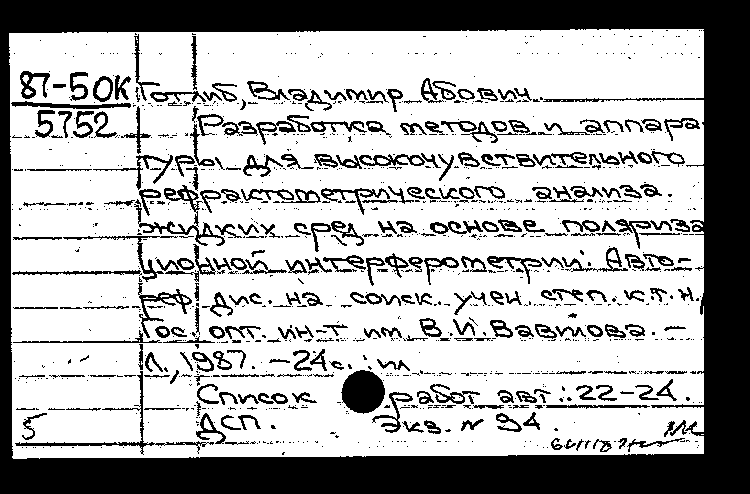 87-5 ОК
5752
Готлиб, Владимир Абович.
Разработка методов и аппара-
туры для высокочувствительного
рефрактометрического анализа
жидких сред на основе поляриза
ционной интерферометрии: Авто-
реф. дис. на соиск. учен. степ. к.т.н./
Гос. опт. ин-т им. С.И. Вавилова. –
Л., 1987. – 24с. : ил.
Список работ авт.: 22-24.
5
ДСП. Экз. № 94.